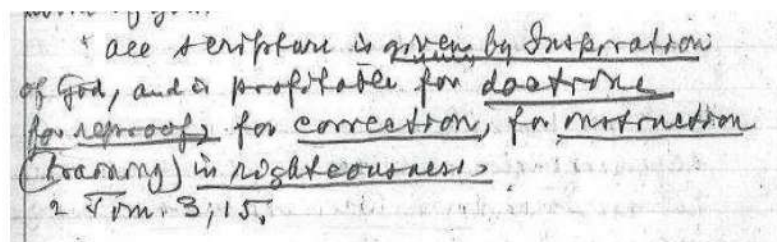 of God.
all scripture is given by Inspiration
of God, and is profitable for doctrine
for reproof, for correction, for instruction
(training) in righteousness.
2 Tim. 3:15.